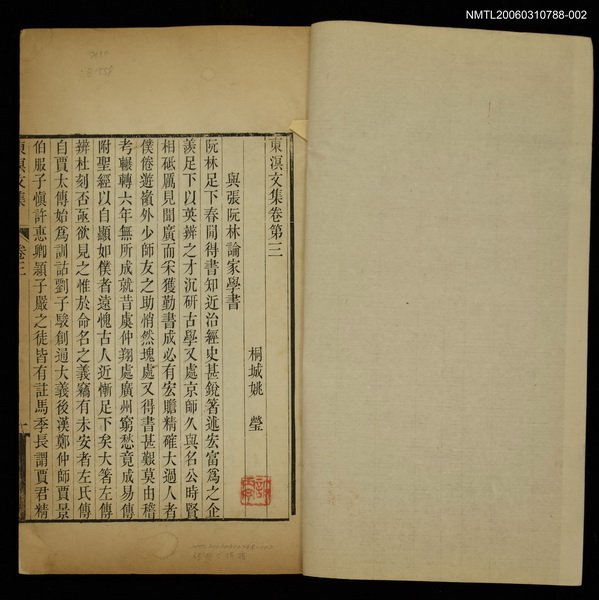 NMTL20060310788-002
東溟文集卷第三
桐城姚 瑩
與張阮林論家學書
阮林足下春閒得書知近治經史甚銳箸述宏富為之企
羨足下以英辨之才沉研古學又處京師久與名公時賢
相砥厲見聞廣而采獲勤書成必有宏贍精確大過人者
僕倦遊嶺外少師友之助悄然塊處又得書甚艱莫由稽
考輾轉六年無所成就昔虞仲翔處廣州窮愁竟成易傳
附聖經以自顯如僕者遠愧古人近慚足下矣大箸左傳
辨杜刻否亟欲見之惟於命名之義竊有未安者左氏傳
自賈太傅始為訓詁劉子駿創過大義後漢鄭仲師賈景
伯服子慎許惠卿潁子嚴之徒皆有註馬季長謂賈君精
東溟文集 卷三